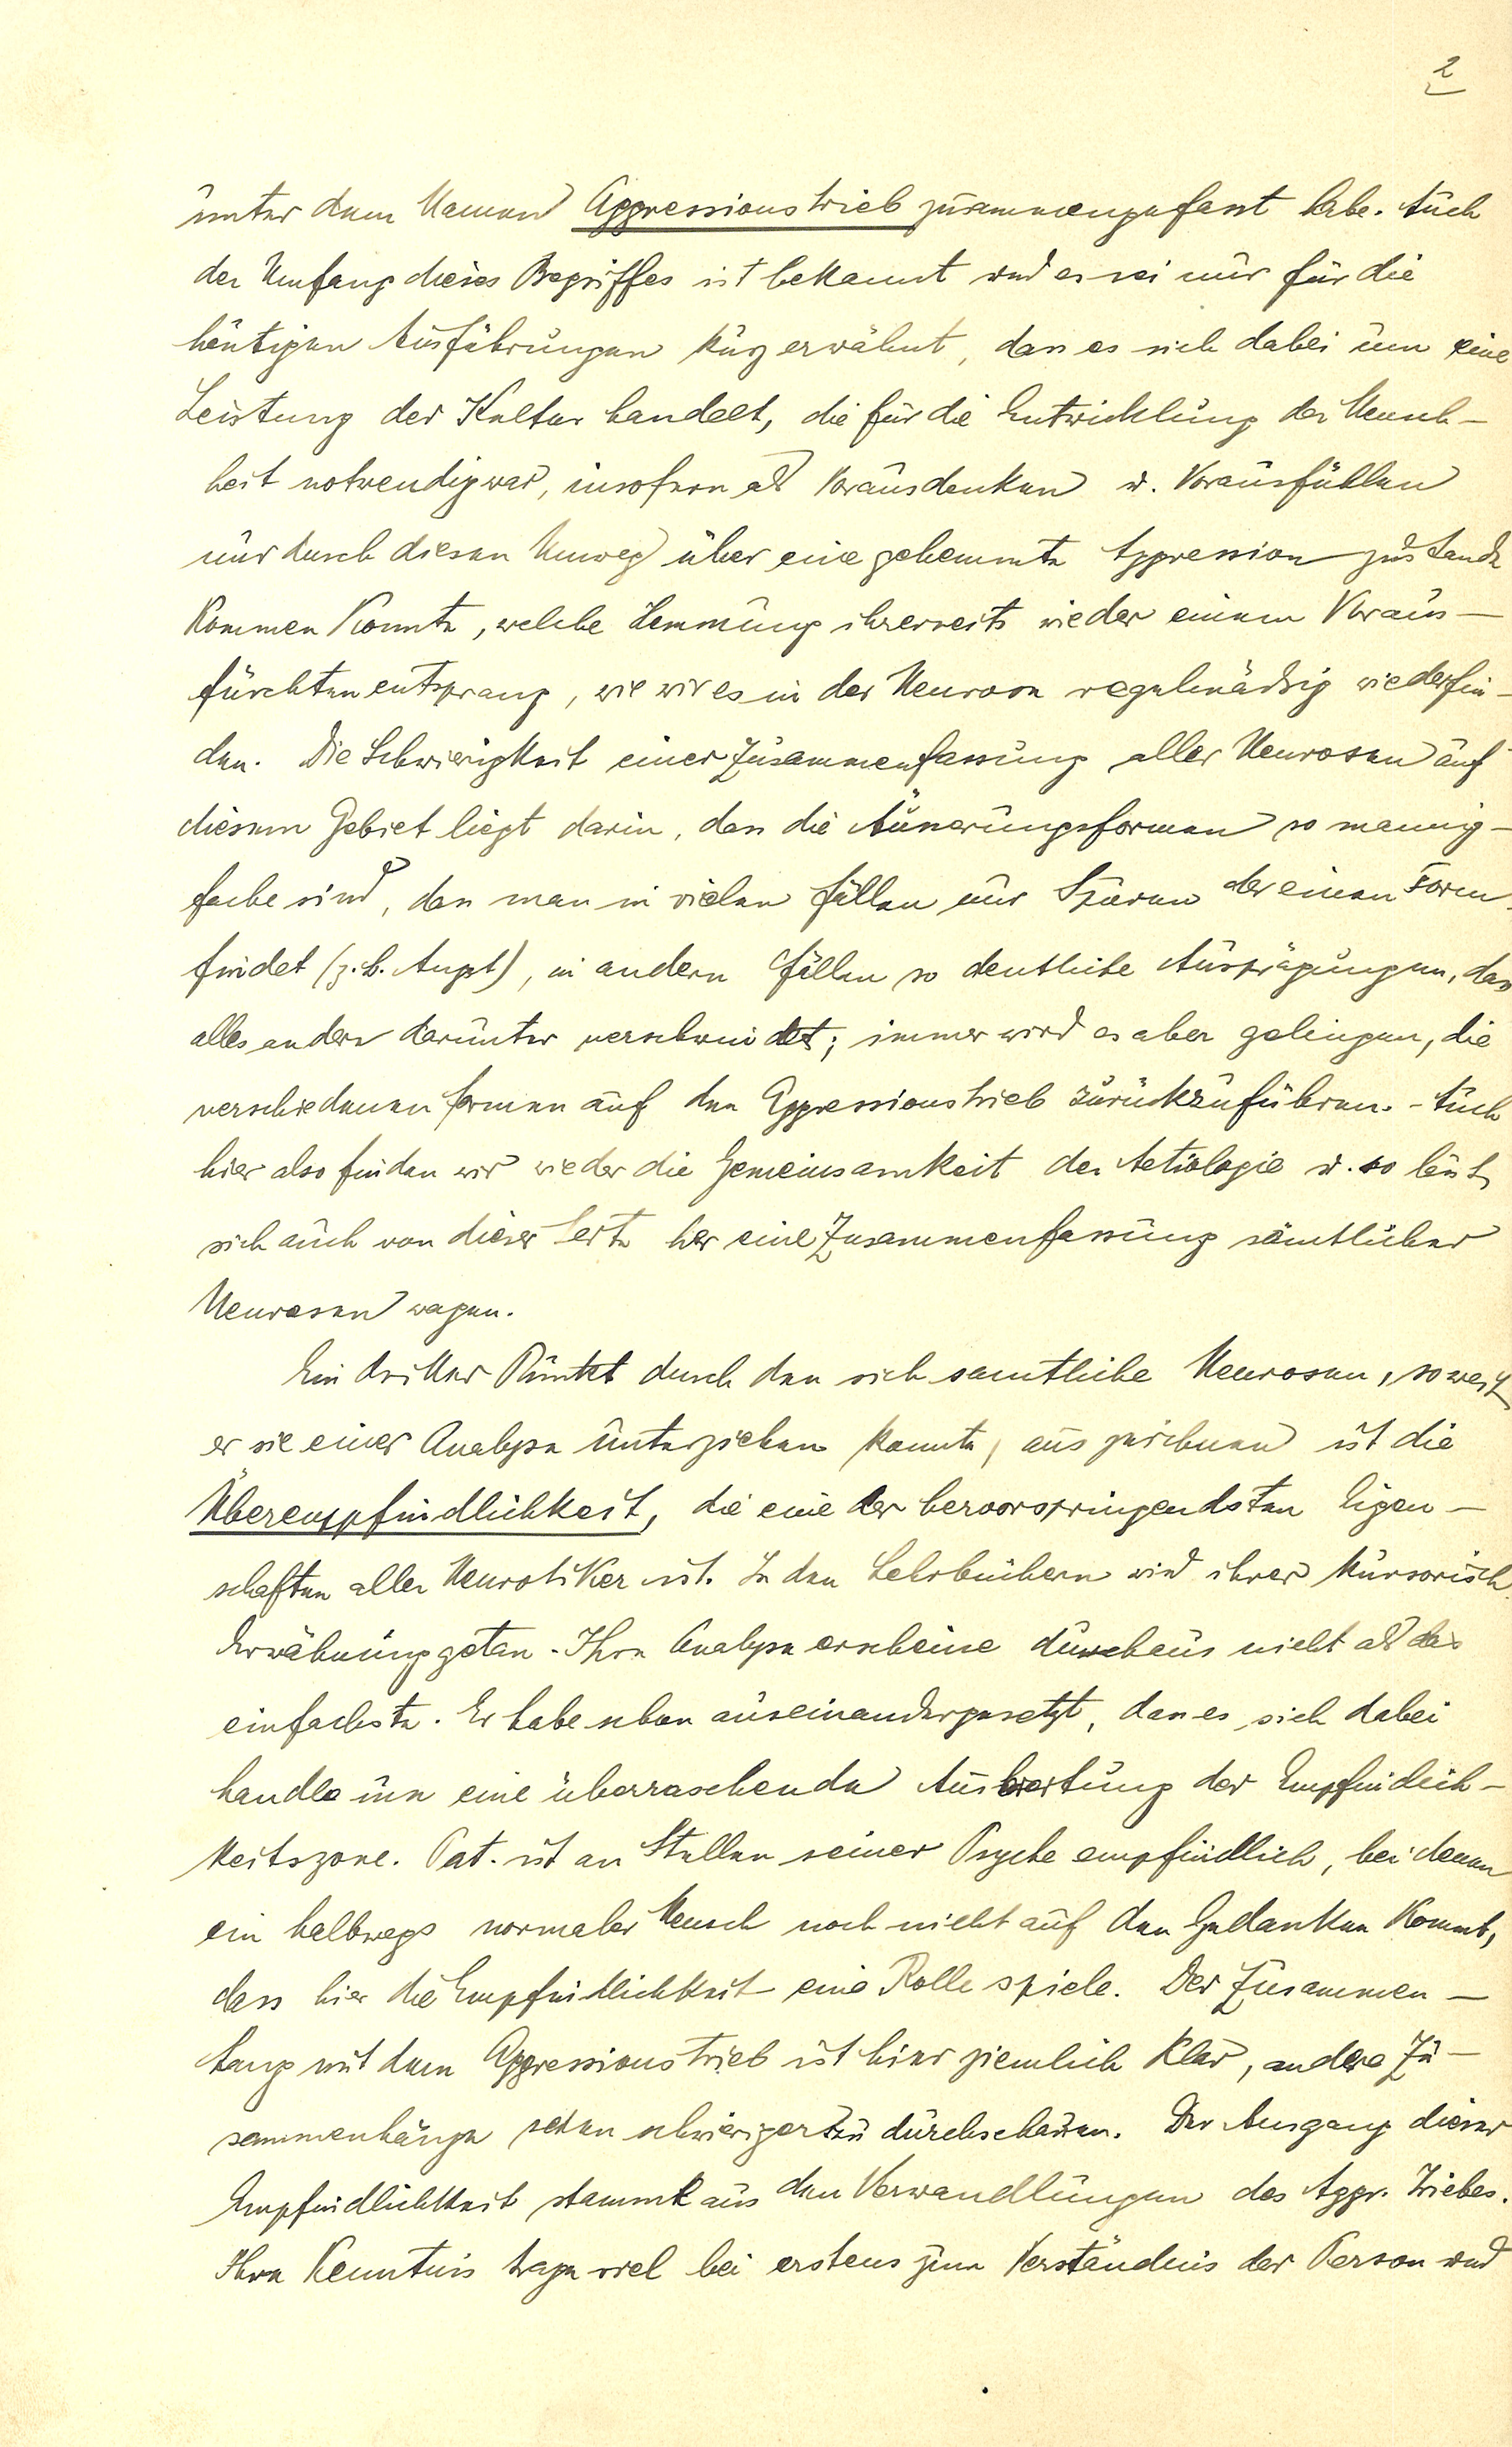 2
unter dem Namen Aggressionstrieb zusammengefasst habe. Auch
der Umfang dieses Begriffes ist bekannt und es sei nur für die
heutigen Ausführungen kurz erwähnt, dass es sich dabei um eine
Leistung der Kultur handelt, die für die Entwicklung der Mensch-
heit notwendig war, insofern als Vorausdenken u. Vorausfühlen
nur durch diesen Umweg über eine gehemmte Aggression zustande
kommen konnte, welche Hemmung ihrerseits wieder einem Voraus-
fürchten entsprang, wie wir es in der Neurose regelmässig wiederfin-
den. Die Schwierigkeit einer Zusammenfassung aller Neurosen auf
diesem Gebiet liegt darin, dass die Äusserungsformen so mannig-
fache sind, dass man in vielen Fällen nur Spuren der einen Form
findet (z.B. Angst), in andern Fällen so deutliche Ausprägungen, dass
alles andere darunter verschwindet; immer wird es aber gelingen, die
verschiedenen Formen auf den Aggressionstrieb zurückzuführen. - Auch
hier also finden wir wieder die Gemeinsamkeit der Aetiologie u. so lässt
sich auch von dieser Seite her eine Zusammenfassung sämtlicher
Neurosen wagen.
Ein dritter Punkt durch den sich samtliche Neurosen, soweit
er sie einer Analyse unterziehen konnte, auszeichnen ist die
Überempfindlichkeit, die eine der hervorspringendsten Eigen-
schaften aller Neurotiker ist. In den Lehrbüchern wird ihrer kursorisch
Erwähnung getan. Ihre Analyse erscheine durchaus nicht als das
einfachste. Er habe schon auseinandergesetzt, dass es sich dabei
handle um eine überraschende Auswertung der Empfindlich-
keitszone. Pat. ist an Stellen seiner Psyche empfindlich, bei denen
ein halbwegs normaler Mensch noch nicht auf den Gedanken kommt,
dass hier die Empfindlichkeit eine Rolle spiele. Der Zusammen-
hang mit dem Aggressionstrieb ist hier ziemlich klar, andere Zu-
sammenhänge seien schwieriger zu durchschauen. Der Ausgang dieser
Empfindlichkeit stammt aus den Verwandlungen des Aggr. Triebes.
Ihre Kenntnis trage viel bei erstens zum Verständnis der Person und